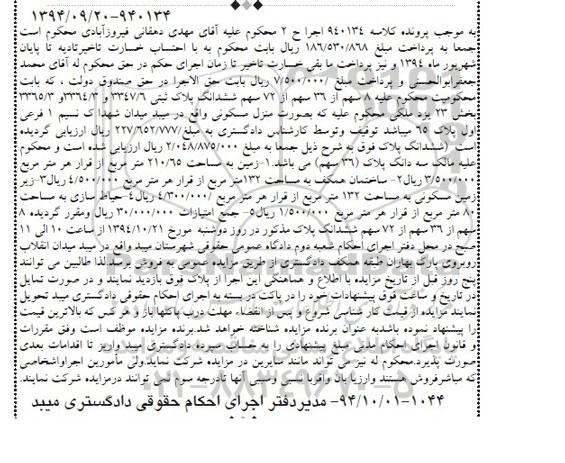 ۱۳۹۴/۰۹/۲۰-۹۴۰۱۳۴
به موجب پرونده کلاسه ۹۴۰۱۳۴ اجرا ح ۲ محکوم علیه آقای مهدی دهقانی فیروزآبادی محکوم است
جمعا به پرداخت مبلغ ۱۸۶/۵۳۰/۸۶۸ ریال بابت محکوم به با احتساب خسارت تاخیرتادیه تا پایان
شهریور ماه ۱۳۹۴ و نیز پرداخت ما بقی خسارت تاخیر تا زمان اجرای حکم در حق محکوم له آقای محمد
جعفرابوالحسنی و پرداخت مبلغ ۷/۵۰۰/۰۰۰/ ریال بابت حق الاجرا در حق صندوق دولت ، که بابت
محکومیت محکوم علیه ۸ سهم از ۳۶ سهم از ۷۲ سهم ششدانگ پلاک ثبتی ۳۳۴۷/۶ و ۳۳۶۴/۳و ۳۳۶۵/۳
بخش ۲۳ یزد ملکی محکوم علیه که بصورت منزل مسکونی واقع در میبد میدان شهدا ک نسیم ۱ فرعی
اول پلاک ۶۵ میباشد توقیف وتوسط کارشناس دادگستری به مبلغ/۲۲۷/۶۵۲/۷۷۷ ریال ارزیابی گردیده
است (ششدانگ پلاک فوق به شرح ذیل جمعا به مبلغ ۲/۰۴۸/۸۷۵/۰۰۰ ریال ارزیابی شده است و محکوم
علیه مالک سه دانگ پلاک (۳۶ سهم) می باشد.۱-زمین به مساحت ۲۱۰/۶۵ متر مربع از قرار هر متر مربع
۳/۵۰۰/۰۰۰ ریال۲- ساختمان همکف به مساحت ۱۳۲متر مربع از قرار هر متر مربع ۴/۵۰۰/۰۰۰ ریال۳-زیر
زمین مسکونی به مساحت ۱۳۲ متر مربع از قرار هر متر مربع ۴/۳۰۰/۰۰۰/ ریال۴-حیاط سازی به مساحت
۸۰ متر مربع از قرار هر متر مربع ۱/۵۰۰/۰۰۰ ریال۵- جمع امتیازات ۳۰/۰۰۰/۰۰۰ ریال ومقرر گردیده ۸
سهم از ۳۶ سهم از ۷۲ سهم ششدانگ پلاک مذکور در روز دوشنبه مورخ ۱۳۹۴/۱۰/۲۱ از ساعت ۱۰ الی ۱۱
صبح در محل دفتر اجرای احکام شعبه دوم دادگاه عمومی حقوقی شهرستان میبد واقع در میبد میدان انقلاب
روبروی پارک بهاران طبقه همکف دادگستری از طریق مزایده عمومی به فروش برسد.لذا طالبین می توانند
پنج روز قبل از تاریخ مزایده با اطلاع و هماهنگی این اجرا از پلاک فوق بازدید نمایند و در صورت تمایل
در تاریخ و ساعت فوق پیشنهادات خود را در پاکت در بسته به اجرای احکام حقوقی دادگستری میبد تحویل
نمایند مزایده از قیمت کار شناسی شروع و پس از انقضاء مهلت درب پاکتها باز و هر کس که بالاترین قیمت
را پیشنهاد نموده باشدبه عنوان برنده مزایده شناخته خواهد شد.برنده مزایده موظف است وفق مقررات
و قانون اجرای احکام مدنی مبلغ پیشنهادی را به حساب سپرده دادگستری میبد واریز تا اقدامات بعدی
صورت پذیرد.محکوم له نیز می تواند مانند سایرین در مزایده شرکت نماید.ولی مامورین اجراواشخاصی
که مباشرفروش هستند وارزیا بان وأقربا نسبی وسببی آنها تادرجه سوم نمی توانند درمزایده شرکت نمایند.
۹۴/۱۰/۰۱-۱۰۴۴- مدیردفتر اجرای احکام حقوقی دادگستری میبد
ParsNamadData
۰۲۱-۸۸۳۴۹۶۷۰-۵